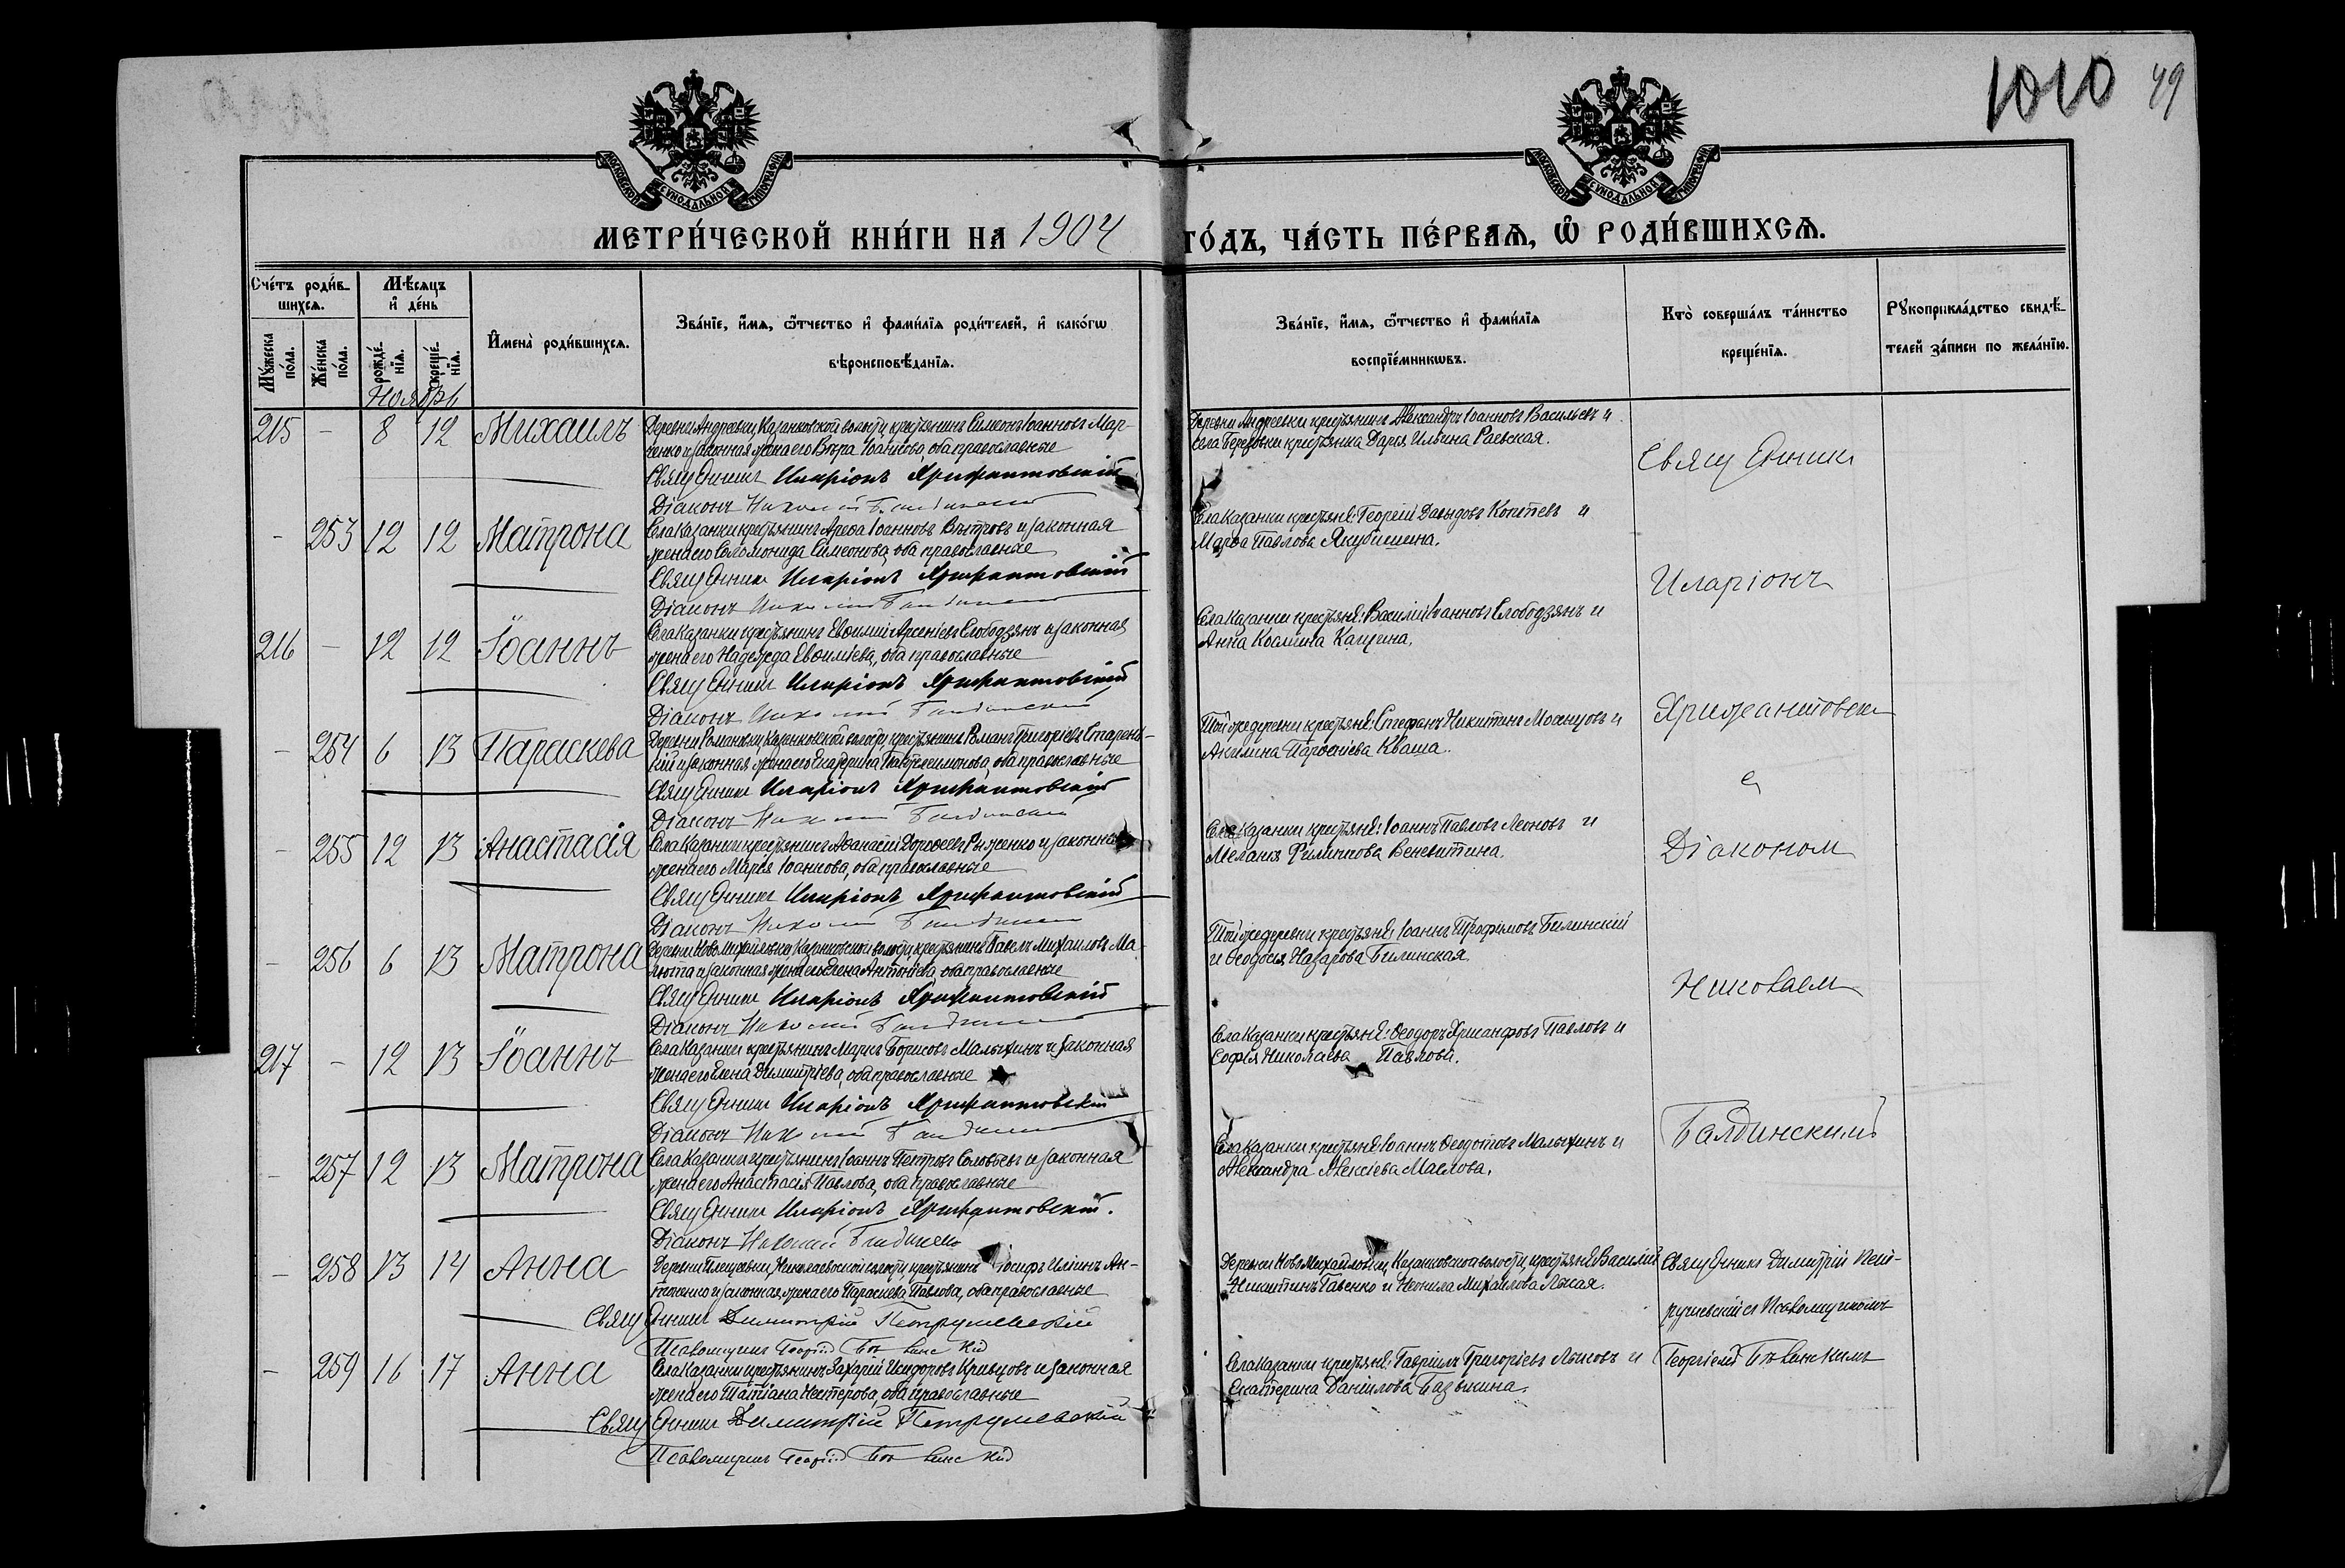 1010 49
МОСКОВСКОЙ СУНОДАЛЬНОЙ ТИПОГРАФІИ
МОСКОВСКОЙ СУНОДАЛЬНОЙ ТИПОГРАФІИ
МЕТРИ́ЧЕСКОЙ КНИ́ГИ НА 1904 ГО́ДЪ, ЧА́СТЬ ПЕ́РВАѦ, Ѡ РОДИ́ВШИХСѦ.
Сче́тъ роди́в-
шихсѧ.
Мꙋ́жеска по́ла.
Же́нска по́ла.
Мѣ́сѧцъ
и҆ де́нь
рожде́-
нїѧ.
креще́-
нїѧ.
И҆мена̀ роди́вшихсѧ.
Зва́нїе, и҆́мѧ, ѻ҆́тчество и҆ фами́лїѧ роди́телей, и҆ како́гѡ
вѣроисповѣ́данїѧ.
Зва́нїе, и҆́мѧ, ѻ҆́тчество и҆ фами́лїѧ
воспрїе́мникѡвъ.
Кто̀ соверша́лъ та́инство
креще́нїѧ.
Рꙋкоприкла́дство свидѣ́-
телей за́писи по жела́нїю.
Ноябрь
215 - 8 12 Михаилъ
Деревни Андреевки, Казанковской волости, крестьянинъ Симеонъ Іоанновъ Мар-
ченко и законная жена его Вѣра Іоаннова, оба православные
Священникъ Иларіонъ
Діаконъ Николай Балдинскій
Деревни Андреевки крестьянинъ Александръ Іоанновъ Васильевъ и
села Березовки крестьянка Дарья Ильина Раевская.
Священник
- 253 12 12 Матрона
Села Казанки крестьянинъ Іоанновъ Вѣтровъ и законная
жена его Соломонида Симеонова, оба православные
Священникъ Иларіонъ
Діаконъ Николай Балдинскій
Села Казанки крестьяне: Георгій Давыдовъ и
Марѳа Павлова Якубишина.
Иларіонъ
216 - 12 12 Іоаннъ
Села Казанки крестьянинъ Евѳимій Арсеніевъ Слободзянъ и законная
жена его Надежда Евѳиміева, оба православные
Священникъ Иларіонъ
Діаконъ Николай Балдинскій
Села Казанки крестьяне: Василій Іоанновъ Слободзянъ и
Анна Косьмина Кащина.
- 254 6 13 Параскева
Деревни Романовки, Казанковской волости, крестьянинъ Романъ Григоріевъ Старень-
кій и законная жена его Екатерина Пантелеимонова, оба православные
Священникъ Иларіонъ
Діаконъ Николай Балдинскій
Той же деревни крестьяне: Стефанъ Никитинъ и
Акилина Парѳеніева Кваша.
с
- 255 12 13 Анастасія
Села Казанки крестьянинъ Аѳанасій Дороѳеевъ Риженко и законная
жена его Марья Іоаннова, оба православные
Священникъ Иларіонъ
Діаконъ Николай Балдинскій
Села Казанки крестьяне: Іоаннъ Павловъ Леоновъ и
Меланья Филиппова Веневитина.
Діаконом
- 256 6 13 Матрона
Деревни Ново-Михайловки Казанковской волости, крестьянинъ Павелъ Михаиловъ Ма-
люта и законная жена его Елена Антоніева, оба православные
Священникъ Иларіонъ
Діаконъ Николай Балдинскій
Той же деревни крестьяне: Іоаннъ Трофимовъ Билинскій
и Ѳеодосія Назарова Билинская.
Николаем
217 - 12 13 Іоаннъ
Села Казанки крестьянинъ Маркъ Борисовъ Малыхинъ и законная
жена его Елена Димитріева, оба православные
Священникъ Иларіонъ
Діаконъ Николай Балдинскій
Села Казанки крестьяне: Ѳеодоръ Хрисанфовъ Павловъ и
Софія Николаева Павлова.
Балдинскимъ
- 257 12 13 Матрона
Села Казанки крестьянинъ Іоаннъ Петровъ Соловьевъ и законная
жена его Анастасія Павлова, оба православные
Священникъ Иларіонъ
Діаконъ Николай Балдинскій
Села Казанки крестьяне: Іоаннъ Ѳеодотовъ Малыхинъ и
Александра Алексіева Маслова.
- 258 13 14 Анна
Деревни Плещеевки, Николаевской волости, крестьянинъ Іосифъ Ильинъ Ан-
и законная жена его Параскева Павлова, оба православные
Священникъ Димитрій Петрушевскій
Псаломщикъ Георгій
Деревни Ново-Михайловки, Казанковской волости, крестьяне: Василій
Никитинъ Гавенко и Неонила Михаилова Лысая.
Священникъ Димитрій Пет-
рушевскій съ Псаломщикомъ
- 259 16 17 Анна
Села Казанки крестьянинъ Захарій Исидоровъ Кривцовъ и законная
жена его Татіана Нестерова, оба православные
Священникъ Димитрій Петрушевскій
Псаломщикъ Георгій
Села Казанки крестьяне: Гавріилъ Григоріевъ Лысовъ и
Екатерина Даніилова Базыкина.
Георгіемъ